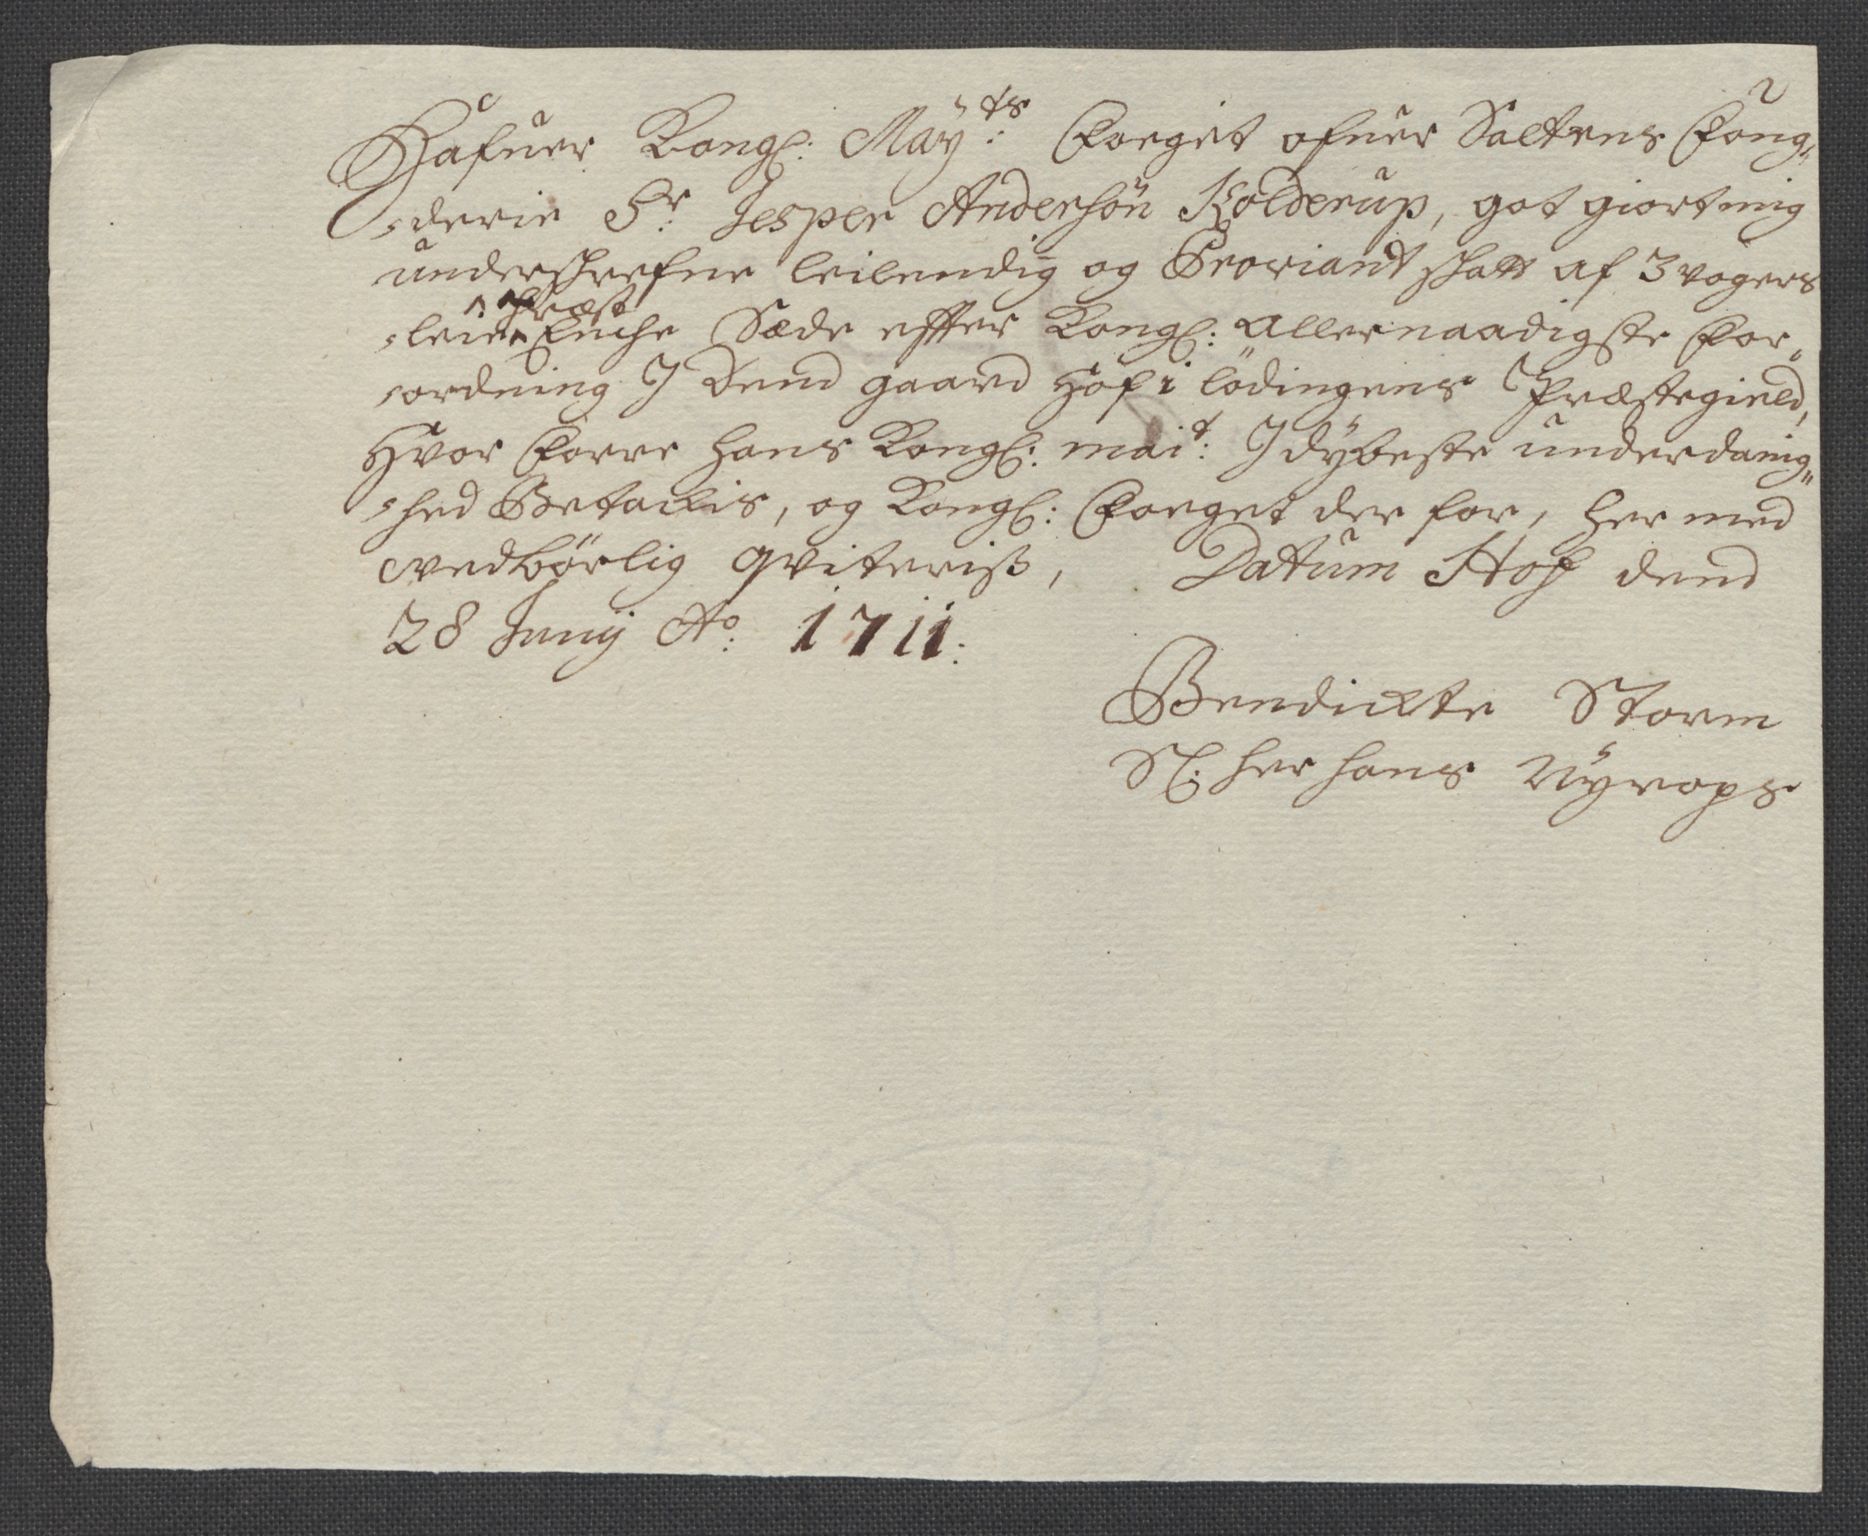 Hafuer Kongl: Maÿ:ts Foeget ofuer Saltens Foug,,
,,derie Sr: Jesper Andersøn Kolderup, got giort mig
underschrefne leilendig og Proviant schatt af 3 vogers
,,leie Præst Enche Sæde effter Kongl: allernaadigste for,,
,,ordning J Dend gaard Hof i lödingens Præstegield,
Hvor forre hans Kongl: mai:t J dÿbeste underdanig,,
,,hed Betackis, og Kongl: Foeget der for, her med
vedbörlig qviteriss, Datum Hof dend
28 Junij Ao: 1711:
Bendickte Storm
Sl: her hans Nÿrops